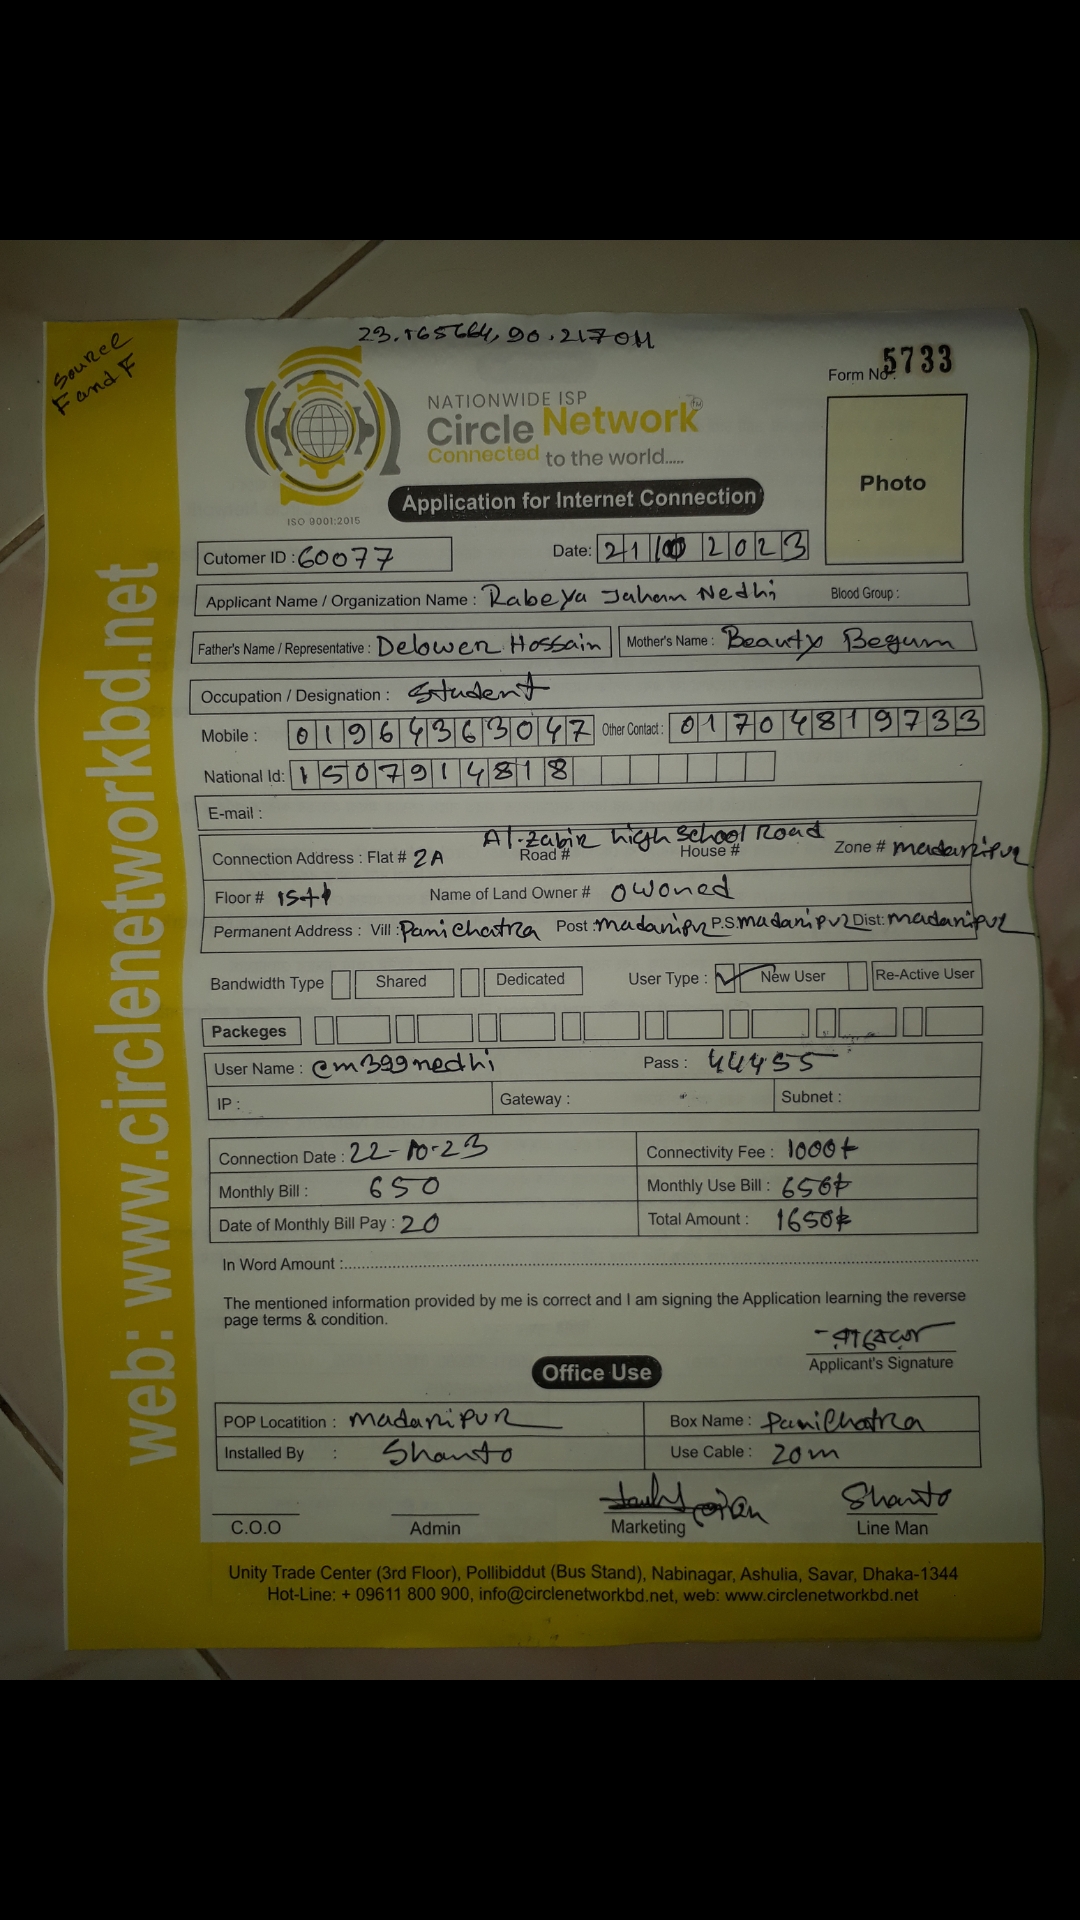 23.165664, 90.217011
Source
F and F
Form No. 5733
NATIONWIDE ISP
Circle Network
Connected to the world.....
ISO 9001:2015
Application for Internet Connection
Photo
Cutomer ID : 60077 Date: 21 10 2023
Applicant Name / Organization Name : Rabeya Jahan Nedhi Blood Group :
Father's Name / Representative : Delower Hossain Mother's Name : Beauty Begum
Occupation / Designation : Student
Mobile : 01964363047 Other Contact : 01704819733
National Id: 1507914818
E-mail :
Al-Zabir high School Road
Connection Address : Flat # 2A Road # House # Zone # madaripur
Floor # 1st Name of Land Owner # owoned
Permanent Address : Vill : Panichatra Post : madaripur P.S. madaripur Dist: madaripur
Bandwidth Type Shared Dedicated User Type : New User Re-Active User
Packeges
User Name : cm399nedhi Pass : 44455
IP : Gateway : Subnet :
Connection Date : 22-10-23 Connectivity Fee : 1000t
Monthly Bill : 650 Monthly Use Bill : 650t
Date of Monthly Bill Pay : 20 Total Amount : 1650t
In Word Amount :
The mentioned information provided by me is correct and I am signing the Application learning the reverse
page terms & condition.
Applicant's Signature
Office Use
POP Locatition : madaripur Box Name : Panichatra
Installed By : Shanto Use Cable : 20m
Shanto
C.O.O Admin Marketing Line Man
Unity Trade Center (3rd Floor), Pollibiddut (Bus Stand), Nabinagar, Ashulia, Savar, Dhaka-1344
Hot-Line: + 09611 800 900, info@circlenetworkbd.net, web: www.circlenetworkbd.net
web: www.circlenetworkbd.net